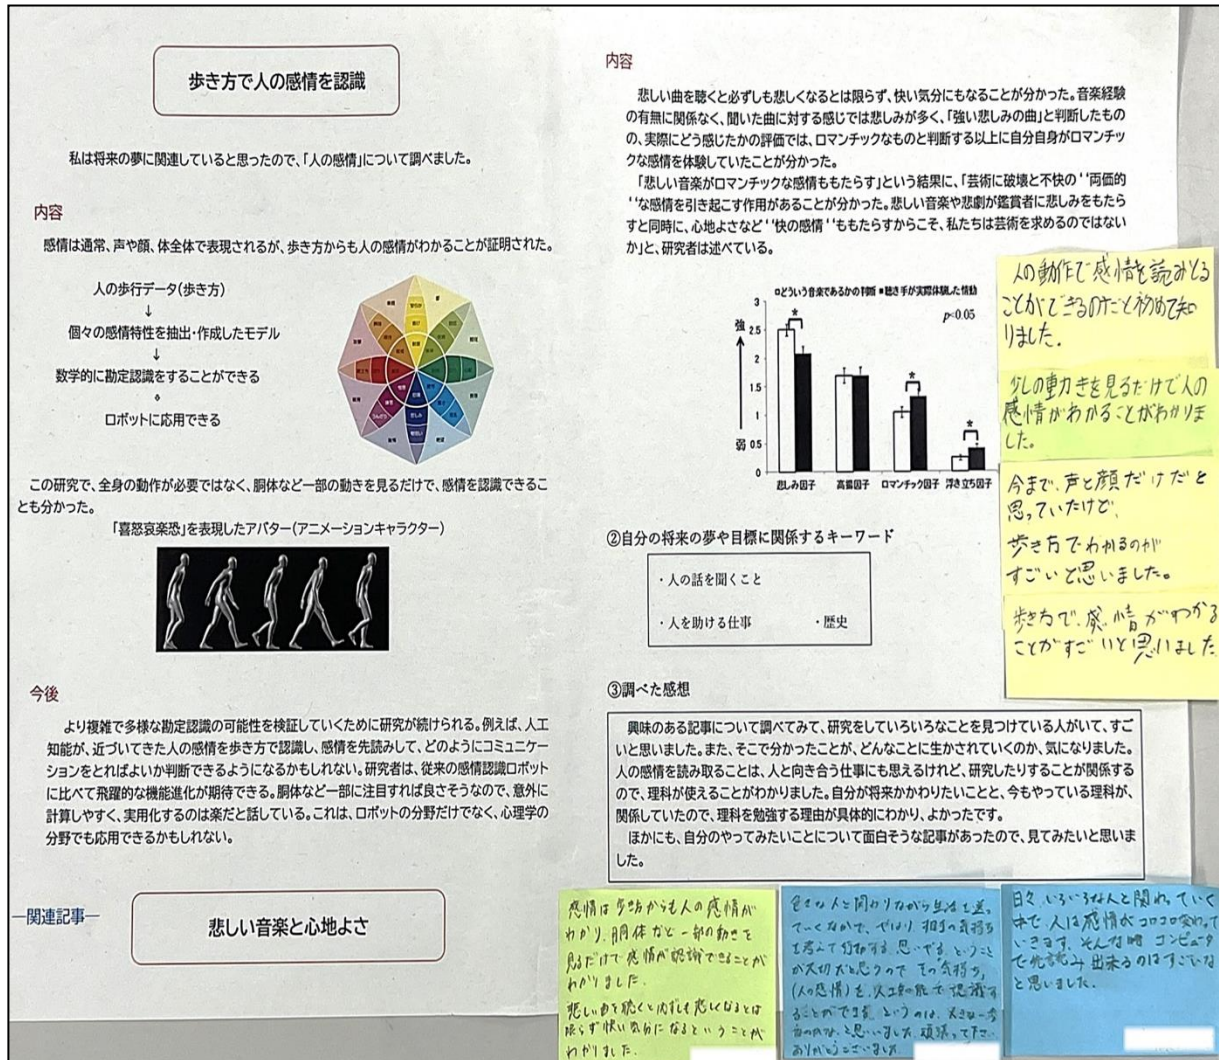 歩き方で人の感情を認識
私は将来の夢に関連していると思ったので、「人の感情」について調べました。
内容
感情は通常、声や顔、体全体で表現されるが、歩き方からも人の感情がわかることが証明された。
人の歩行データ(歩き方)
↓
個々の感情特性を抽出・作成したモデル
↓
数学的に勘定認識をすることができる
ロボットに応用できる
この研究で、全身の動作が必要ではなく、胴体など一部の動きを見るだけで、感情を認識できるこ
とも分かった。
「喜怒哀楽恐」を表現したアバター(アニメーションキャラクター)
今後
より複雑で多様な勘定認識の可能性を検証していくために研究が続けられる。例えば、人工
知能が、近づいてきた人の感情を歩き方で認識し、感情を先読みして、どのようにコミュニケー
ションをとればよいか判断できるようになるかもしれない。研究者は、従来の感情認識ロボット
に比べて飛躍的な機能進化が期待できる。胴体など一部に注目すれば良さそうなので、意外に
計算しやすく、実用化するのは楽だと話している。これは、ロボットの分野だけでなく、心理学の
分野でも応用できるかもしれない。
―関連記事―
悲しい音楽と心地よさ
内容
悲しい曲を聴くと必ずしも悲しくなるとは限らず、快い気分にもなることが分かった。音楽経験
の有無に関係なく、聞いた曲に対する感じでは悲しみが多く、「強い悲しみの曲」と判断したもの
の、実際にどう感じたかの評価では、ロマンチックなものと判断する以上に自分自身がロマンチッ
クな感情を体験していたことが分かった。
「悲しい音楽がロマンチックな感情ももたらす」という結果に、「芸術に破壊と不快の‘‘両価的
‘‘な感情を引き起こす作用があることが分かった。悲しい音楽や悲劇が鑑賞者に悲しみをもたら
すと同時に、心地よさなど‘‘快の感情‘‘ももたらすからこそ、私たちは芸術を求めるのではない
か」と、研究者は述べている。
□どういう音楽であるかの判断 ■聴き手が実際体験した情動
p<0.05
強
弱
3
2.5
2
1.5
1
0.5
0
*
*
*
悲しみ因子 高揚因子 ロマンチック因子 浮き立ち因子
②自分の将来の夢や目標に関係するキーワード
・人の話を聞くこと
・人を助ける仕事 ・歴史
③調べた感想
興味のある記事について調べてみて、研究をしていろいろなことを見つけている人がいて、すご
いと思いました。また、そこで分かったことが、どんなことに生かされていくのか、気になりました。
人の感情を読み取ることは、人と向き合う仕事にも思えるけれど、研究したりすることが関係する
ので、理科が使えることがわかりました。自分が将来かかわりたいことと、今もやっている理科が、
関係していたので、理科を勉強する理由が具体的にわかり、よかったです。
ほかにも、自分のやってみたいことについて面白そうな記事があったので、見てみたいと思いま
した。
人の動作で感情を読みとる
ことができるのだと初めて知
りました.
少しの動きを見るだけで人の
感情がわかることがわかりま
した。
今まで、声と顔だけだと
思っていたけど、
歩き方でわかるのが
すごいと思いました。
歩き方で、感情がわかる
ことがすごいと思いました
感情は歩き方からも人の感情が
わかり、胴体など一部の動きを
見るだけで感情が認識できることが
わかりました.
悲しい曲を聴くと必ずしも悲しくなるとは
限らず快い気分になるということが
わかりました.
色々な人と関わりながら生活を送っ
ていくなかで、やはり相手の気持ち
を考えて行動する、思いやる、ということ
が大切だと思うので その気持ち,
(人の感情)を、人工知能で認識す
ることができる というのは、
と思いました。頑張って下さい
ありがとうございました
日々、いろいろな人と関わっていく
中で、人は感情がコロコロ変わって
いきます。そんな時 コンピュータ
で先読み出来るのはすごいな
と思いました。